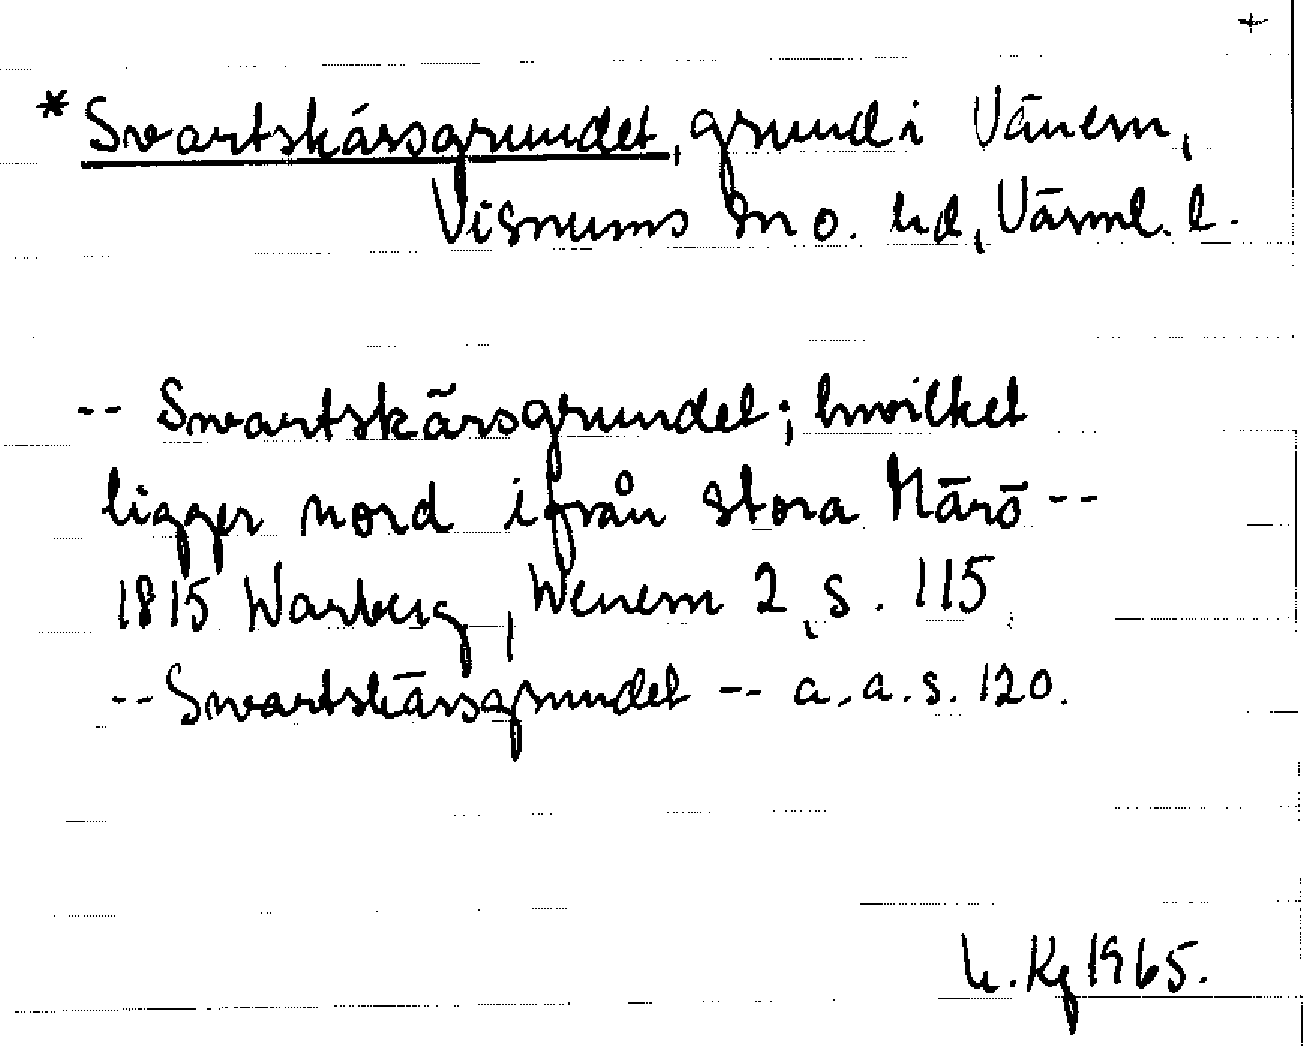 +
* Svartskärsgrundet, grund i Vänern,
Visnums sn o. hd, Värml. l.
-- Swartskärsgrundet; hwilket
ligger nord ifrån stora Närö --
1815 Warberg, Wenern 2, s. 115
-- Swartskärsgrundet -- a.a.s. 120.
h. Kg 1965.